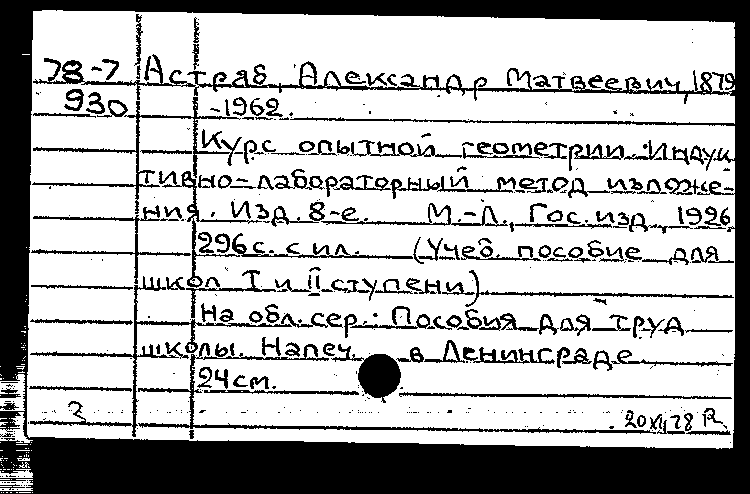 78-7 Астряб, Александр Матвеевич, 1879
930 -1962.
Курс опытной геометрии. Индук
тивно-лабораторный метод изложе-
ния. Изд. 8-е. М.-Л., Гос. изд., 1926
296 с. с ил. (Учеб. пособие для
школ I и II ступени)
На обл. сер.: Пособия для труд
школы. Напеч. в Ленинграде
24 см.
2